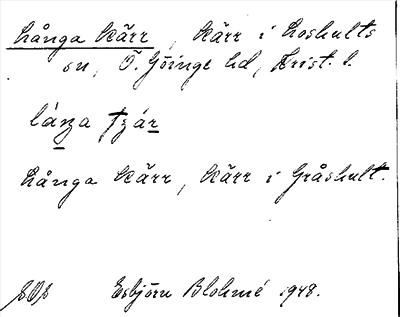 Långa Kärr, Kärr i Loshults
sn, Ö. Göinge hd, Krist. l.
Långa Kärr, Kärr i Gråshult.
Esbjörn Blohmé 1948.